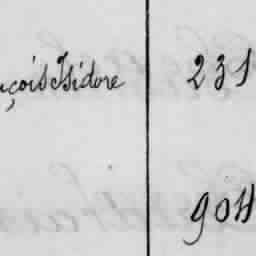 nçois Isidore 231
904